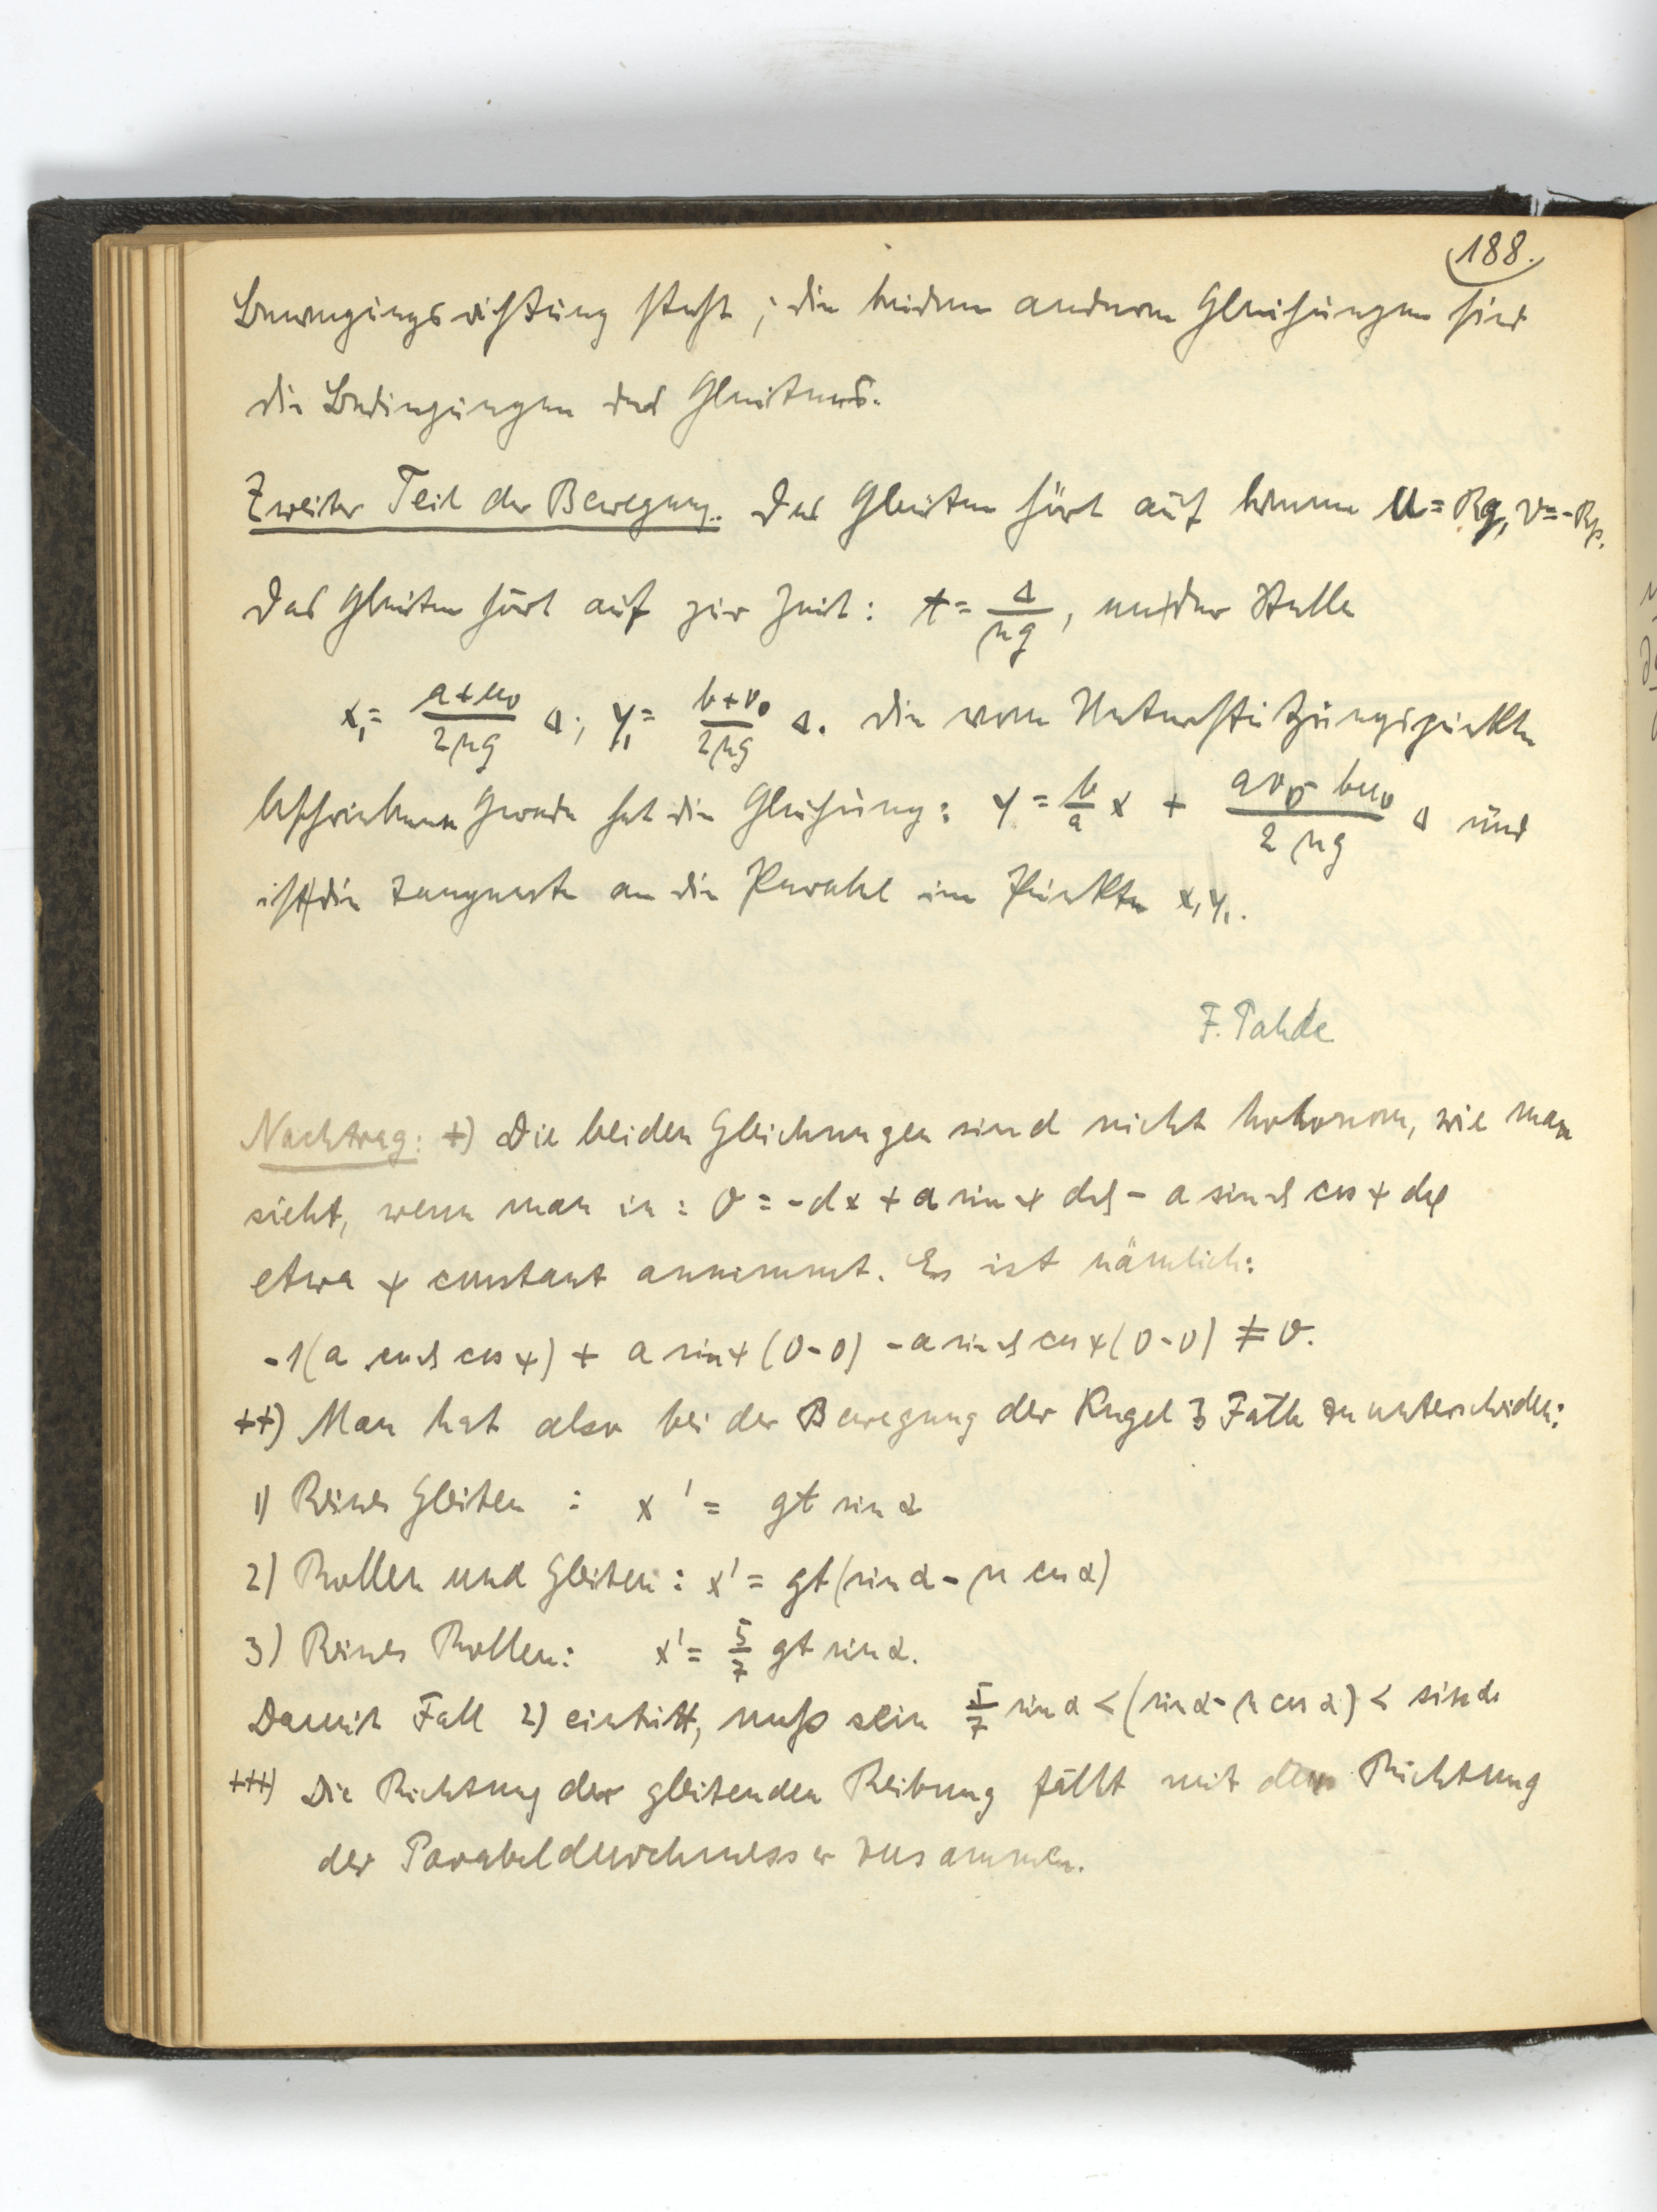 188.
Bewegungsrichtung steht; die beiden anderen Gleichungen sind
die Bedingungen des Gleitens.
Zweiter Teil der Bewegung. Das Gleiten hört auf wenn u = Rq, v = -Rp.
Das Gleiten hört auf zur Zeit: t = Δ/μg, an der Stelle
x₁ = (a+u₀)/2μg Δ; y₁ = (b+v₀)/2μg Δ. Die vom Unterstützungspunkte
beschriebene Gerade hat die Gleichung: y = b/a x + (av₀ - bu₀)/2μg Δ und
ist die Tangente an die Parabel im Punkte x₁y₁.
F. Pahde
Nachtrag: +) Die beiden Gleichungen sind nicht holonom, wie man
sieht, wenn man in: 0 = -dx + a sin ψ dϑ - a sin ϑ cos ψ dφ
etwa ψ constant annimmt. Es ist nämlich:
-1(a cos ϑ cos ψ) + a sin ψ (0-0) - a sin ϑ cos ψ (0-0) ≠ 0.
++) Man hat also bei der Bewegung der Kugel 3 Fälle zu unterscheiden:
1) Reines Gleiten : x' = gt sin α
2) Rollen und Gleiten: x' = gt(sin α - μ cos α)
3) Reines Rollen: x' = 5/7 gt sin α.
Damit Fall 2) eintritt, muß sein 5/7 sin α < (sin α - μ cos α) < sin α
+++) Die Richtung der gleitenden Reibung fällt mit der Richtung
der Parabeldurchmesser zusammen.